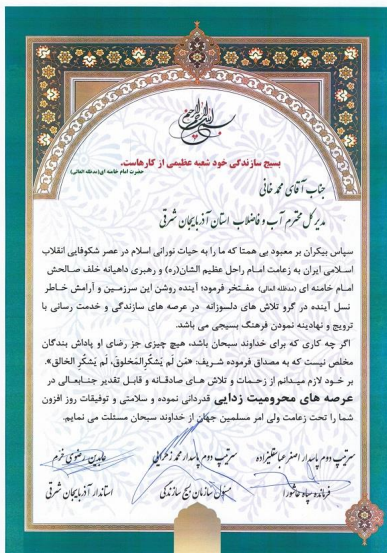 بسیج سازندگی خود شعبه عظیمی از کارهاست.
حضرت امام خامنه ای(مدظله العالی)
جناب آقای محمد خانی
مدیر کل محترم آب و فاضلاب استان آذربایجان شرقی
سپاس بیکران بر معبودی بی همتا که ما را به حیات نورانی اسلام در عصر شکوفایی انقلاب
اسلامی ایران به زعامت امام راحل عظیم الشان(ره) و رهبری داهیانه خلف صالحش
امام خامنه ای (مدظله العالی) مفتخر فرمود؛ آینده روشن این سرزمین و آرامش خاطر
نسل آینده در گرو تلاش های دلسوزانه در عرصه های سازندگی و خدمت رسانی با
ترویج و نهادینه نمودن فرهنگ بسیجی می باشد.
اگر چه کاری که برای خداوند سبحان باشد، هیچ چیزی جز رضای او پاداش بندگان
مخلص نیست که به مصداق فرموده شریف: «مَن لَم یَشکُرِالمَخلوق، لَم یَشکُرِ الخالق».
بر خود لازم میدانم از زحمات و تلاش های صادقانه و قابل تقدیر جنابعالی در
عرصه های محرومیت زدایی قدردانی نموده و سلامتی و توفیقات روز افزون
شما را تحت زعامت ولی امر مسلمین جهان از خداوند سبحان مسئلت می نمایم.
سرتیپ دوم پاسدار اصغر عباسقلیزاده سرتیپ دوم پاسدار محمد زهرایی عابدین رضوی خرم
فرمانده سپاه عاشورا مسئول سازمان بسیج سازندگی استاندار آذربایجان شرقی